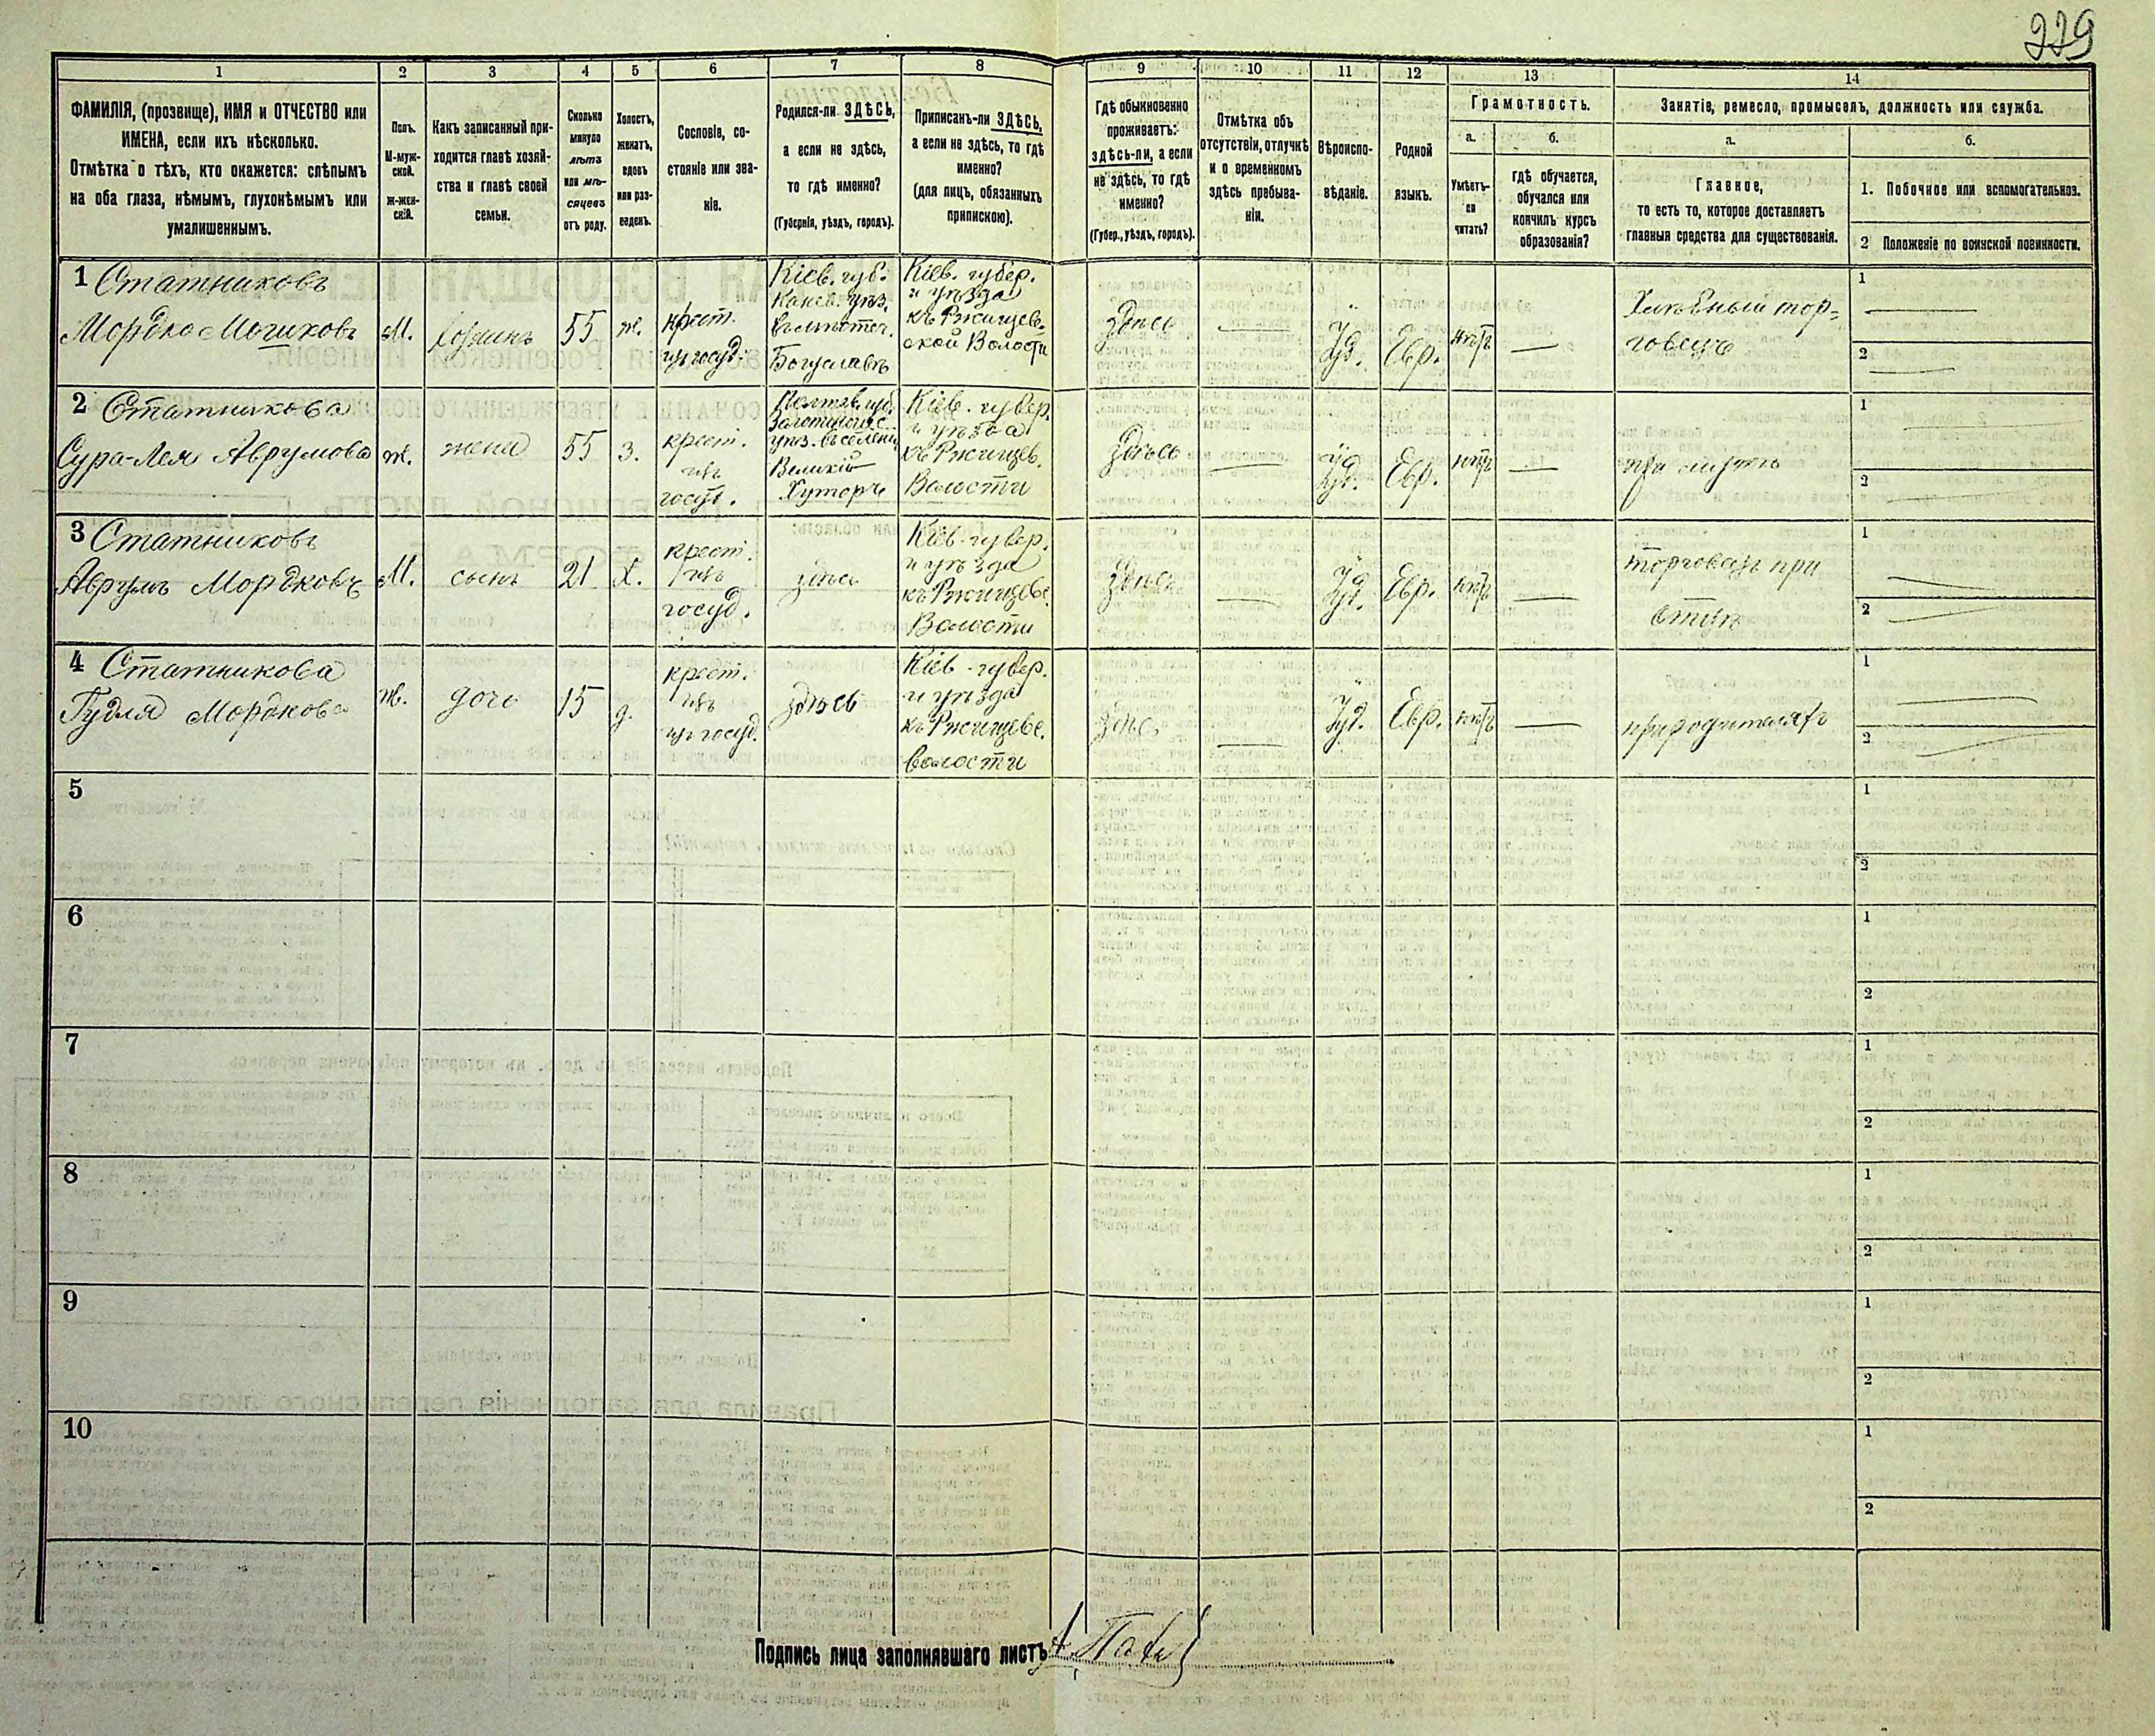 229
1 2 3 4 5 6 7 8 9 10 11 12 13 14
ФАМИЛІЯ, (прозвище), ИМЯ и ОТЧЕСТВО или
ИМЕНА, если ихъ нѣсколько.
Отмѣтка о тѣхъ, кто окажется: слѣпымъ
на оба глаза, нѣмымъ, глухонѣмымъ или
умалишеннымъ.
Полъ.
М-муж-
ской.
Ж-жен-
скій.
Какъ записанный при-
ходится главѣ хозяй-
ства и главѣ своей
семьи.
Сколько
минуло
лѣтъ
или мѣ-
сяцевъ
отъ роду.
Холостъ,
женатъ,
вдовъ
или раз-
веденъ.
Сословіе, со-
стояніе или зва-
ніе.
Родился-ли ЗДѢСЬ,
а если не здѣсь,
то гдѣ именно?
(Губернія, уѣздъ, городъ).
Приписанъ-ли ЗДѢСЬ,
а если не здѣсь, то гдѣ
именно?
(для лицъ, обязанныхъ
припискою).
Гдѣ обыкновенно
проживаетъ:
здѣсь-ли, а если
не здѣсь, то гдѣ
именно?
(Губер., уѣздъ, городъ).
Отмѣтка объ
отсутствіи, отлучкѣ
и о временномъ
здѣсь пребыва-
ніи.
Вѣроиспо-
вѣданіе.
Родной
языкъ.
Грамотность.
а.
Умѣетъ-
ли
читать?
б.
гдѣ обучается,
обучался или
кончилъ курсъ
образованія?
Занятіе, ремесло, промыселъ, должность или служба.
а.
Главное,
то есть то, которое доставляетъ
главныя средства для существованія.
б.
1. Побочное или вспомогательное.
2 Положеніе по воинской повинности.
1 Статниковъ
Мордко Мошковъ
М.
хозяинъ
55
ж.
крест.
изъ госуд.
Кіев. губ.
Канев. уѣз.
въ мѣстеч.
Богуславъ
Кіев. губер.
и уѣзда
къ Ржищев-
ской Волости
Здѣсь
Іуд.
Евр.
нѣтъ
Хлѣбный тор-
говецъ
1
2
2 Статникова
Сура-Лея Аврумова
ж.
жена
55
з.
крест.
изъ
госуд.
Полтав. губ.
уѣз. въ селеніи
Великій
Хуторъ
Кіев. губер.
и уѣзда
къ Ржищев.
Волости
Здѣсь
Іуд.
Евр.
нѣтъ
при мужѣ
1
2
3 Статниковъ
Аврумъ Мордковъ
М.
сынъ
21
х.
крест.
изъ
госуд.
здѣсь
Кіев. губер.
и уѣзда
къ Ржищеве.
Волости
Здѣсь
Іуд.
Евр.
нѣтъ
торговецъ при
отцѣ
1
2
4 Статникова
Гудля Мордкова
ж.
дочь
15
д.
крест.
изъ
госуд.
здѣсь
Кіев. губер.
и уѣзда
къ Ржищеве.
волости
здѣсь
Іуд.
Евр.
нѣтъ
при родителяхъ
1
2
5
1
2
6
1
2
7
1
2
8
1
2
9
1
2
10
1
2
Подпись лица заполнявшаго листъ